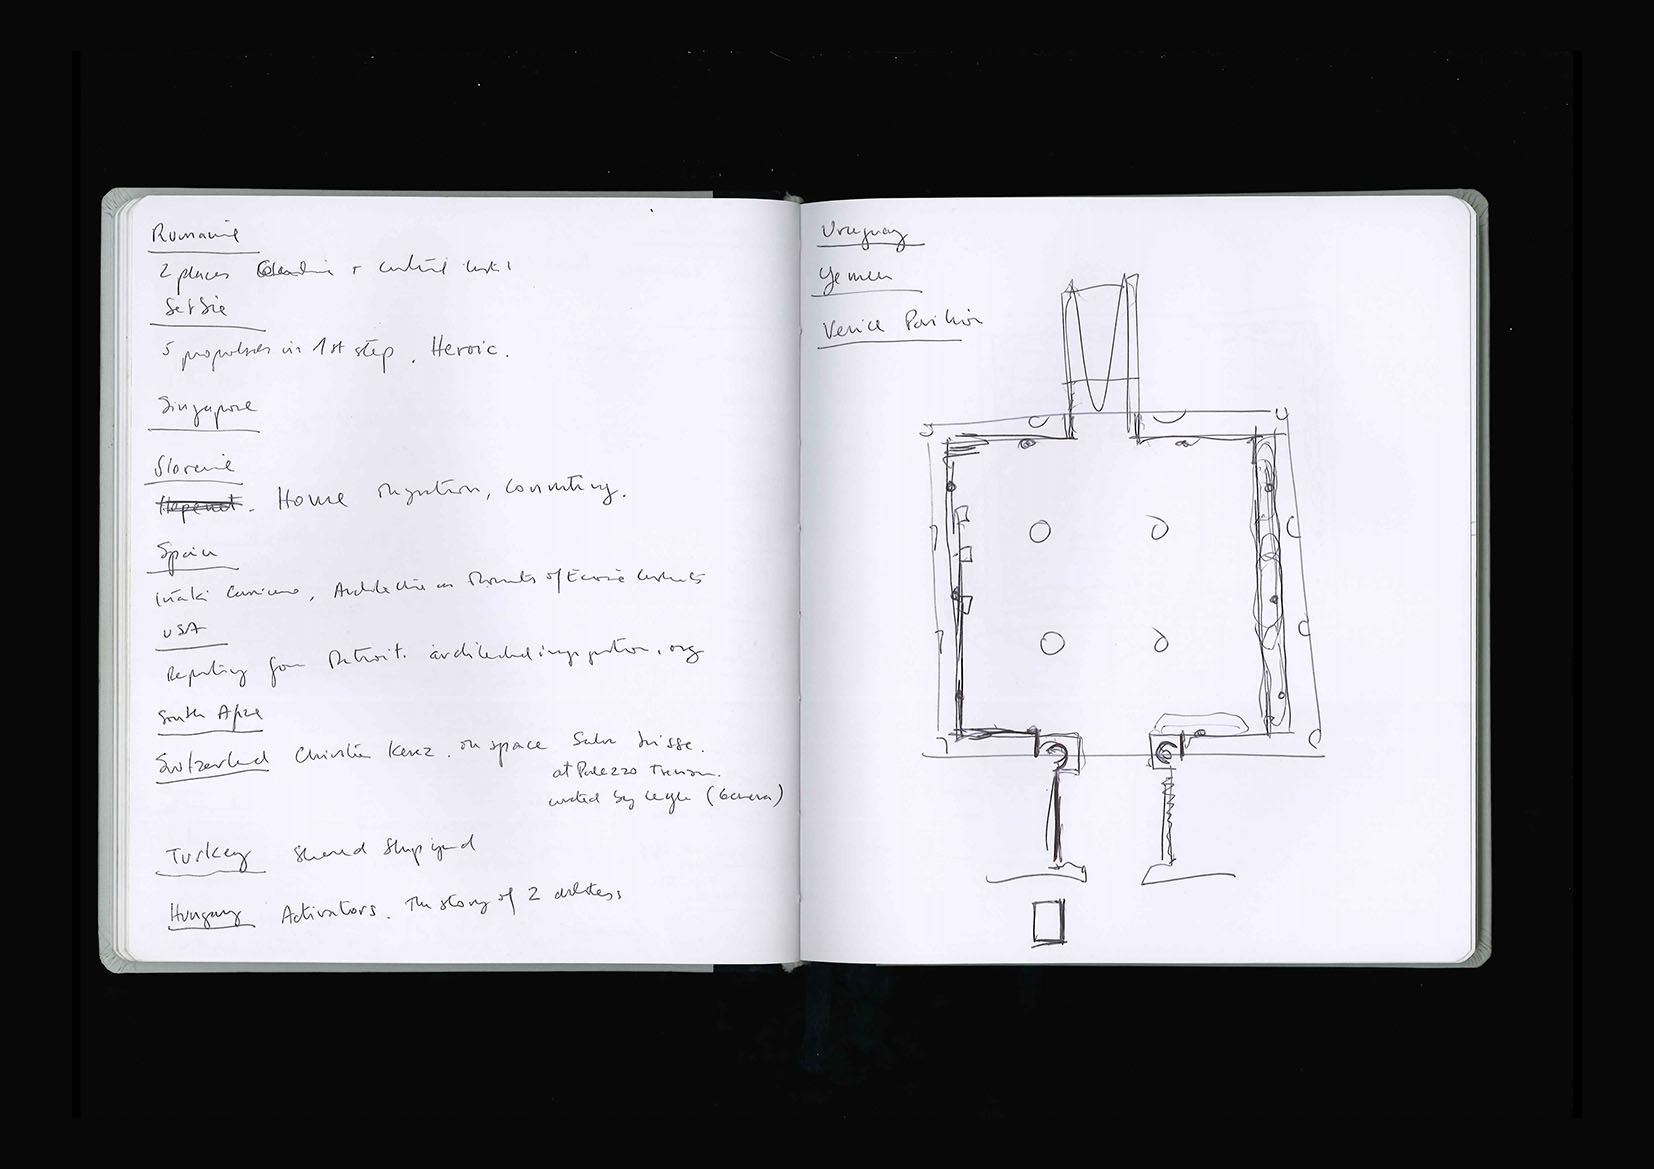 Rumanie
2 places +
Serbie
5 proposals in 1st step. Heroic.
Singapore
Slovenie
Home Migration, Commuting.
Spain
Iñaki Carnicero, Architecture as of
USA
Reporting from Detroit. architectural imagination.org
South Africa
Switzerland Christian Kerez. on space Salon Suisse.
at Palazzo Trevisan.
curated by (Geneva)
Turkey Shared Shipyard
Hungary Activators. The story of 2
Uruguay
Yemen
Venice Pavilion